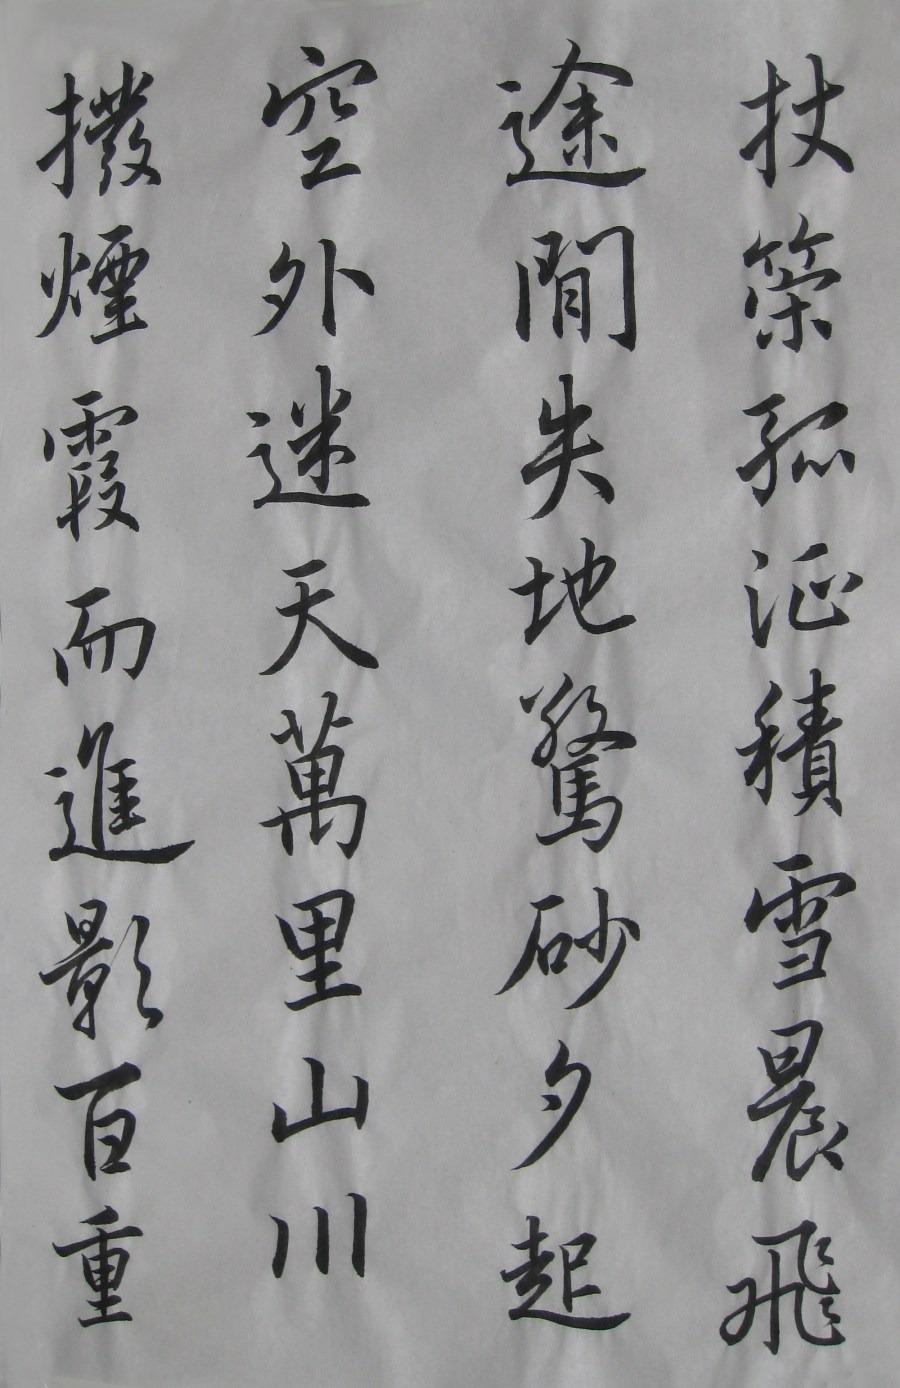 杖策孤征積雪晨飛
途間失地驚砂夕起
空外迷天萬里山川
撥煙霞而進影百重